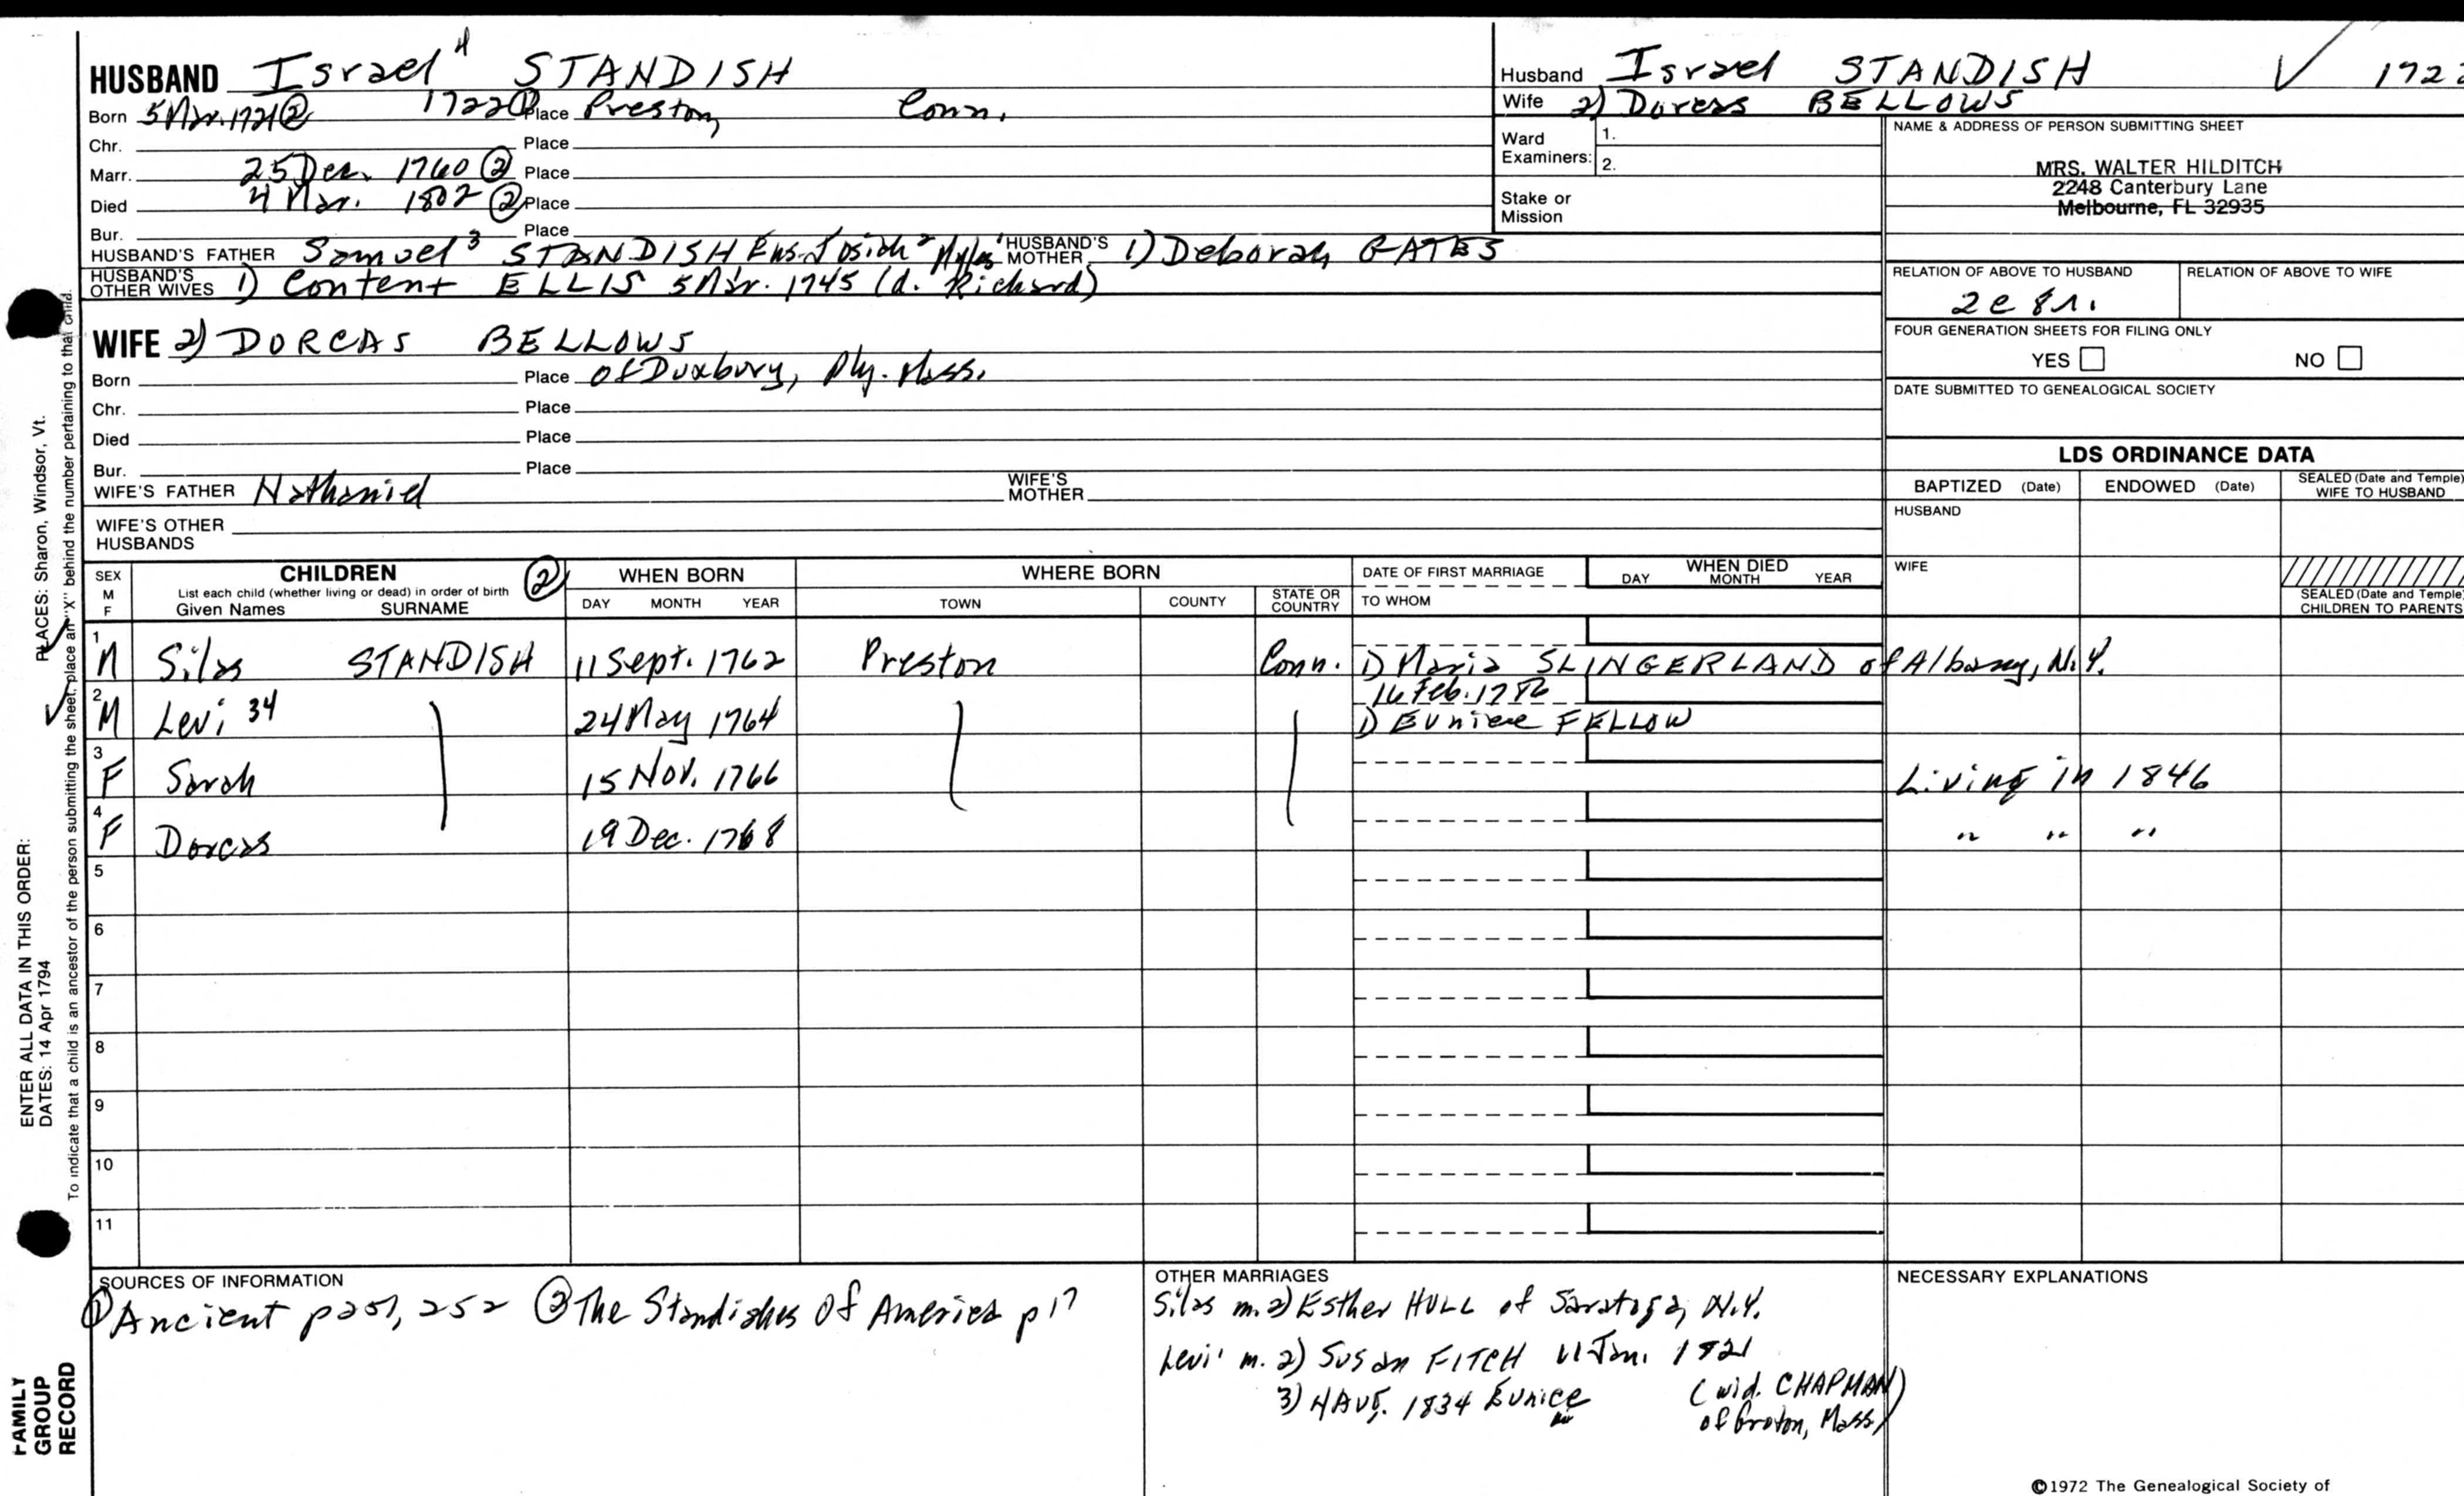 HUSBAND Israel 4 STANDISH
Born 5 Mar. 1721 ② 1722 ① Place Preston, Conn.
Chr. Place
Marr. 25 Dec. 1760 ② Place
Died 4 Mar. 1802 ② Place
Bur. Place
HUSBAND'S FATHER Samuel 3 STANDISH Ens. Josiah 2 Myles 1 HUSBAND'S MOTHER 1) Deborah GATES
HUSBAND'S OTHER WIVES 1) Content ELLIS 5 Mar. 1745 (d. Richard)
WIFE 2) DORCAS BELLOWS
Born Place of Duxbury, Ply. Mass.
Chr. Place
Died Place
Bur. Place
WIFE'S FATHER Nathaniel WIFE'S MOTHER
WIFE'S OTHER HUSBANDS
Husband Israel STANDISH √ 1722
Wife 2) Dorcas BELLOWS
Ward Examiners: 1.
2.
Stake or Mission
NAME & ADDRESS OF PERSON SUBMITTING SHEET
MRS. WALTER HILDITCH
2248 Canterbury Lane
Melbourne, FL 32935
RELATION OF ABOVE TO HUSBAND RELATION OF ABOVE TO WIFE
2c 8r.
FOUR GENERATION SHEETS FOR FILING ONLY
YES NO
DATE SUBMITTED TO GENEALOGICAL SOCIETY
LDS ORDINANCE DATA
BAPTIZED (Date) ENDOWED (Date) SEALED (Date and Temple) WIFE TO HUSBAND
HUSBAND
WIFE
SEALED (Date and Temple) CHILDREN TO PARENTS
SEX M F CHILDREN ② WHEN BORN WHERE BORN DATE OF FIRST MARRIAGE WHEN DIED
List each child (whether living or dead) in order of birth
Given Names SURNAME DAY MONTH YEAR TOWN COUNTY STATE OR COUNTRY TO WHOM DAY MONTH YEAR
1 M Silas STANDISH 11 Sept. 1762 Preston Conn. 1) Maria SLINGERLAND of Albany, N.Y.
16 Feb.
2 M Levi 34 24 May 1764 1) Euniece FELLOW
3 F Sarah 15 Nov. 1766 Living in 1846
4 F Dorcas 19 Dec. 1768 " " "
5
6
7
8
9
10
11
SOURCES OF INFORMATION
① Ancient p 251, 252 ② The Standishes Of America p 17
OTHER MARRIAGES
Silas m. 2) Esther HULL of Saratoga, N.Y.
Levi m. 2) Susan FITCH 11 Jan. 1821
3) 4 Aug. 1834 Eunice (wid. CHAPMAN
of Groton, Mass.)
NECESSARY EXPLANATIONS
©1972 The Genealogical Society of
PLACES: Sharon, Windsor, Vt.
ENTER ALL DATA IN THIS ORDER:
DATES: 14 Apr 1794
To indicate that a child is an ancestor of the person submitting the sheet, place an "X" behind the number pertaining to that child.
FAMILY
GROUP
RECORD